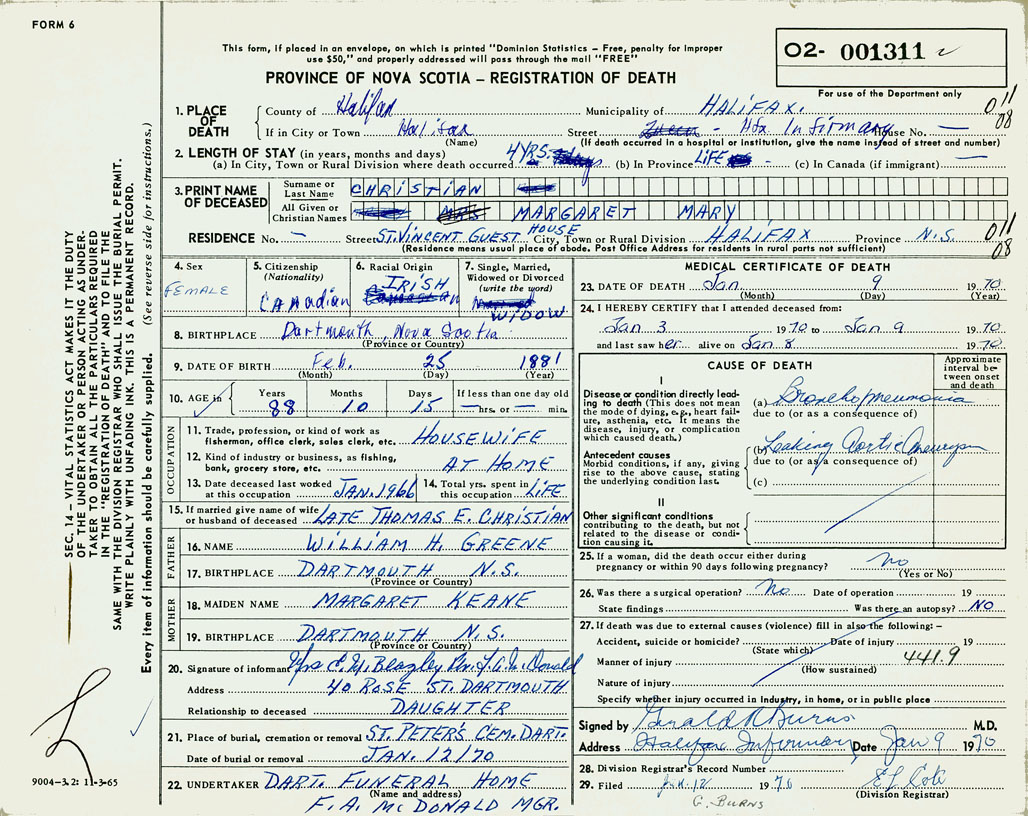 FORM 6
This form, if placed in an envelope, on which is printed "Dominion Statistics – Free, penalty for improper
use $50," and properly addressed will pass through the mail "FREE"
PROVINCE OF NOVA SCOTIA – REGISTRATION OF DEATH
02- 001311
For use of the Department only
011
08
1. PLACE OF DEATH
County of Halifax Municipality of HALIFAX.
If in City or Town Halifax Street - Hfx Infirmary House No. —
(Name) (If death occurred in a hospital or institution, give the name instead of street and number)
2. LENGTH OF STAY (in years, months and days)
(a) In City, Town or Rural Division where death occurred 4 YRS. (b) In Province LIFE (c) In Canada (if immigrant) —
3. PRINT NAME OF DECEASED
Surname or Last Name CHRISTIAN
All Given or Christian Names MRS MARGARET MARY
RESIDENCE No. — Street ST. VINCENT GUEST HOUSE City, Town or Rural Division HALIFAX Province N.S.
011
08
(Residence means usual place of abode. Post Office Address for residents in rural parts not sufficient)
4. Sex FEMALE
5. Citizenship (Nationality) Canadian
6. Racial Origin IRISH
7. Single, Married, Widowed or Divorced (write the word) Married WIDOW
8. BIRTHPLACE Dartmouth, Nova Scotia
(Province or Country)
9. DATE OF BIRTH Feb. 25 1881
(Month) (Day) (Year)
10. AGE in Years 88 Months 10 Days 15 If less than one day old — hrs. or — min.
OCCUPATION
11. Trade, profession, or kind of work as fisherman, office clerk, sales clerk, etc. HOUSEWIFE
12. Kind of industry or business, as fishing, bank, grocery store, etc. AT HOME
13. Date deceased last worked at this occupation JAN. 1966 14. Total yrs. spent in this occupation LIFE
15. If married give name of wife or husband of deceased LATE THOMAS E. CHRISTIAN
FATHER
16. NAME WILLIAM H. GREENE
17. BIRTHPLACE DARTMOUTH N.S.
(Province or Country)
MOTHER
18. MAIDEN NAME MARGARET KEANE
19. BIRTHPLACE DARTMOUTH N.S.
(Province or Country)
20. Signature of informant Mrs C. M. Beazley
Address 40 ROSE ST. DARTMOUTH
Relationship to deceased DAUGHTER
21. Place of burial, cremation or removal ST. PETER'S CEM. DART.
Date of burial or removal JAN. 12/70
22. UNDERTAKER DART. FUNERAL HOME
(Name and address)
F. A. McDONALD MGR.
MEDICAL CERTIFICATE OF DEATH
23. DATE OF DEATH Jan. 9 1970
(Month) (Day) (Year)
24. I HEREBY CERTIFY that I attended deceased from:
Jan 3 1970 to Jan 9 1970
and last saw her alive on Jan 8 1970
CAUSE OF DEATH
Approximate interval between onset and death
I
Disease or condition directly leading to death (This does not mean the mode of dying, e.g., heart failure, asthenia, etc. It means the disease, injury, or complication which caused death.)
(a) Bronchopneumonia
due to (or as a consequence of)
Antecedent causes
Morbid conditions, if any, giving rise to the above cause, stating the underlying condition last.
(b) Leaking Aortic Aneurysm
due to (or as a consequence of)
(c)
II
Other significant conditions
contributing to the death, but not related to the disease or condition causing it.
25. If a woman, did the death occur either during pregnancy or within 90 days following pregnancy? no
(Yes or No)
26. Was there a surgical operation? No Date of operation 19
State findings Was there an autopsy? NO
27. If death was due to external causes (violence) fill in also the following: –
Accident, suicide or homicide? Date of injury 19
(State which)
Manner of injury 441.9
(How sustained)
Nature of injury
Specify whether injury occurred in industry, in home, or in public place
Signed by Gerald R Burns M.D.
Address Halifax Infirmary Date Jan 9 1970
28. Division Registrar's Record Number
29. Filed Jan. 12 1970
(Division Registrar)
G. BURNS
SEC. 14 – VITAL STATISTICS ACT MAKES IT THE DUTY
OF THE UNDERTAKER OR PERSON ACTING AS UNDER-
TAKER TO OBTAIN ALL THE PARTICULARS REQUIRED
IN THE "REGISTRATION OF DEATH" AND TO FILE THE
SAME WITH THE DIVISION REGISTRAR WHO SHALL ISSUE THE BURIAL PERMIT.
WRITE PLAINLY WITH UNFADING INK. THIS IS A PERMANENT RECORD.
Every item of information should be carefully supplied. (See reverse side for instructions.)
9004-3.2: 11-3-65